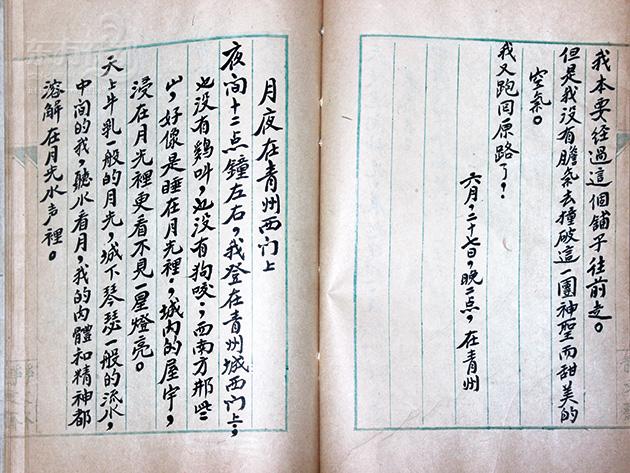 我本要经過這個鋪子往前走。
但是我没有膽氣去撞破這一團神聖而甜美的
空氣。
我又跑囘原路了!
六月,二十七日,晚二点,在青州
月夜在青州西门上
夜间十二点鐘左右,我登在青州城西门上;
也没有鷄叫,也没有狗咬;西南方那些
山,好像是睡在月光裡;城内的屋宇,
浸在月光裡更看不見一星燈亮。
天上牛乳一般的月光,城下琴瑟一般的流水,
中间的我,聽水看月,我的肉體和精神都
溶解在月光水声裡。